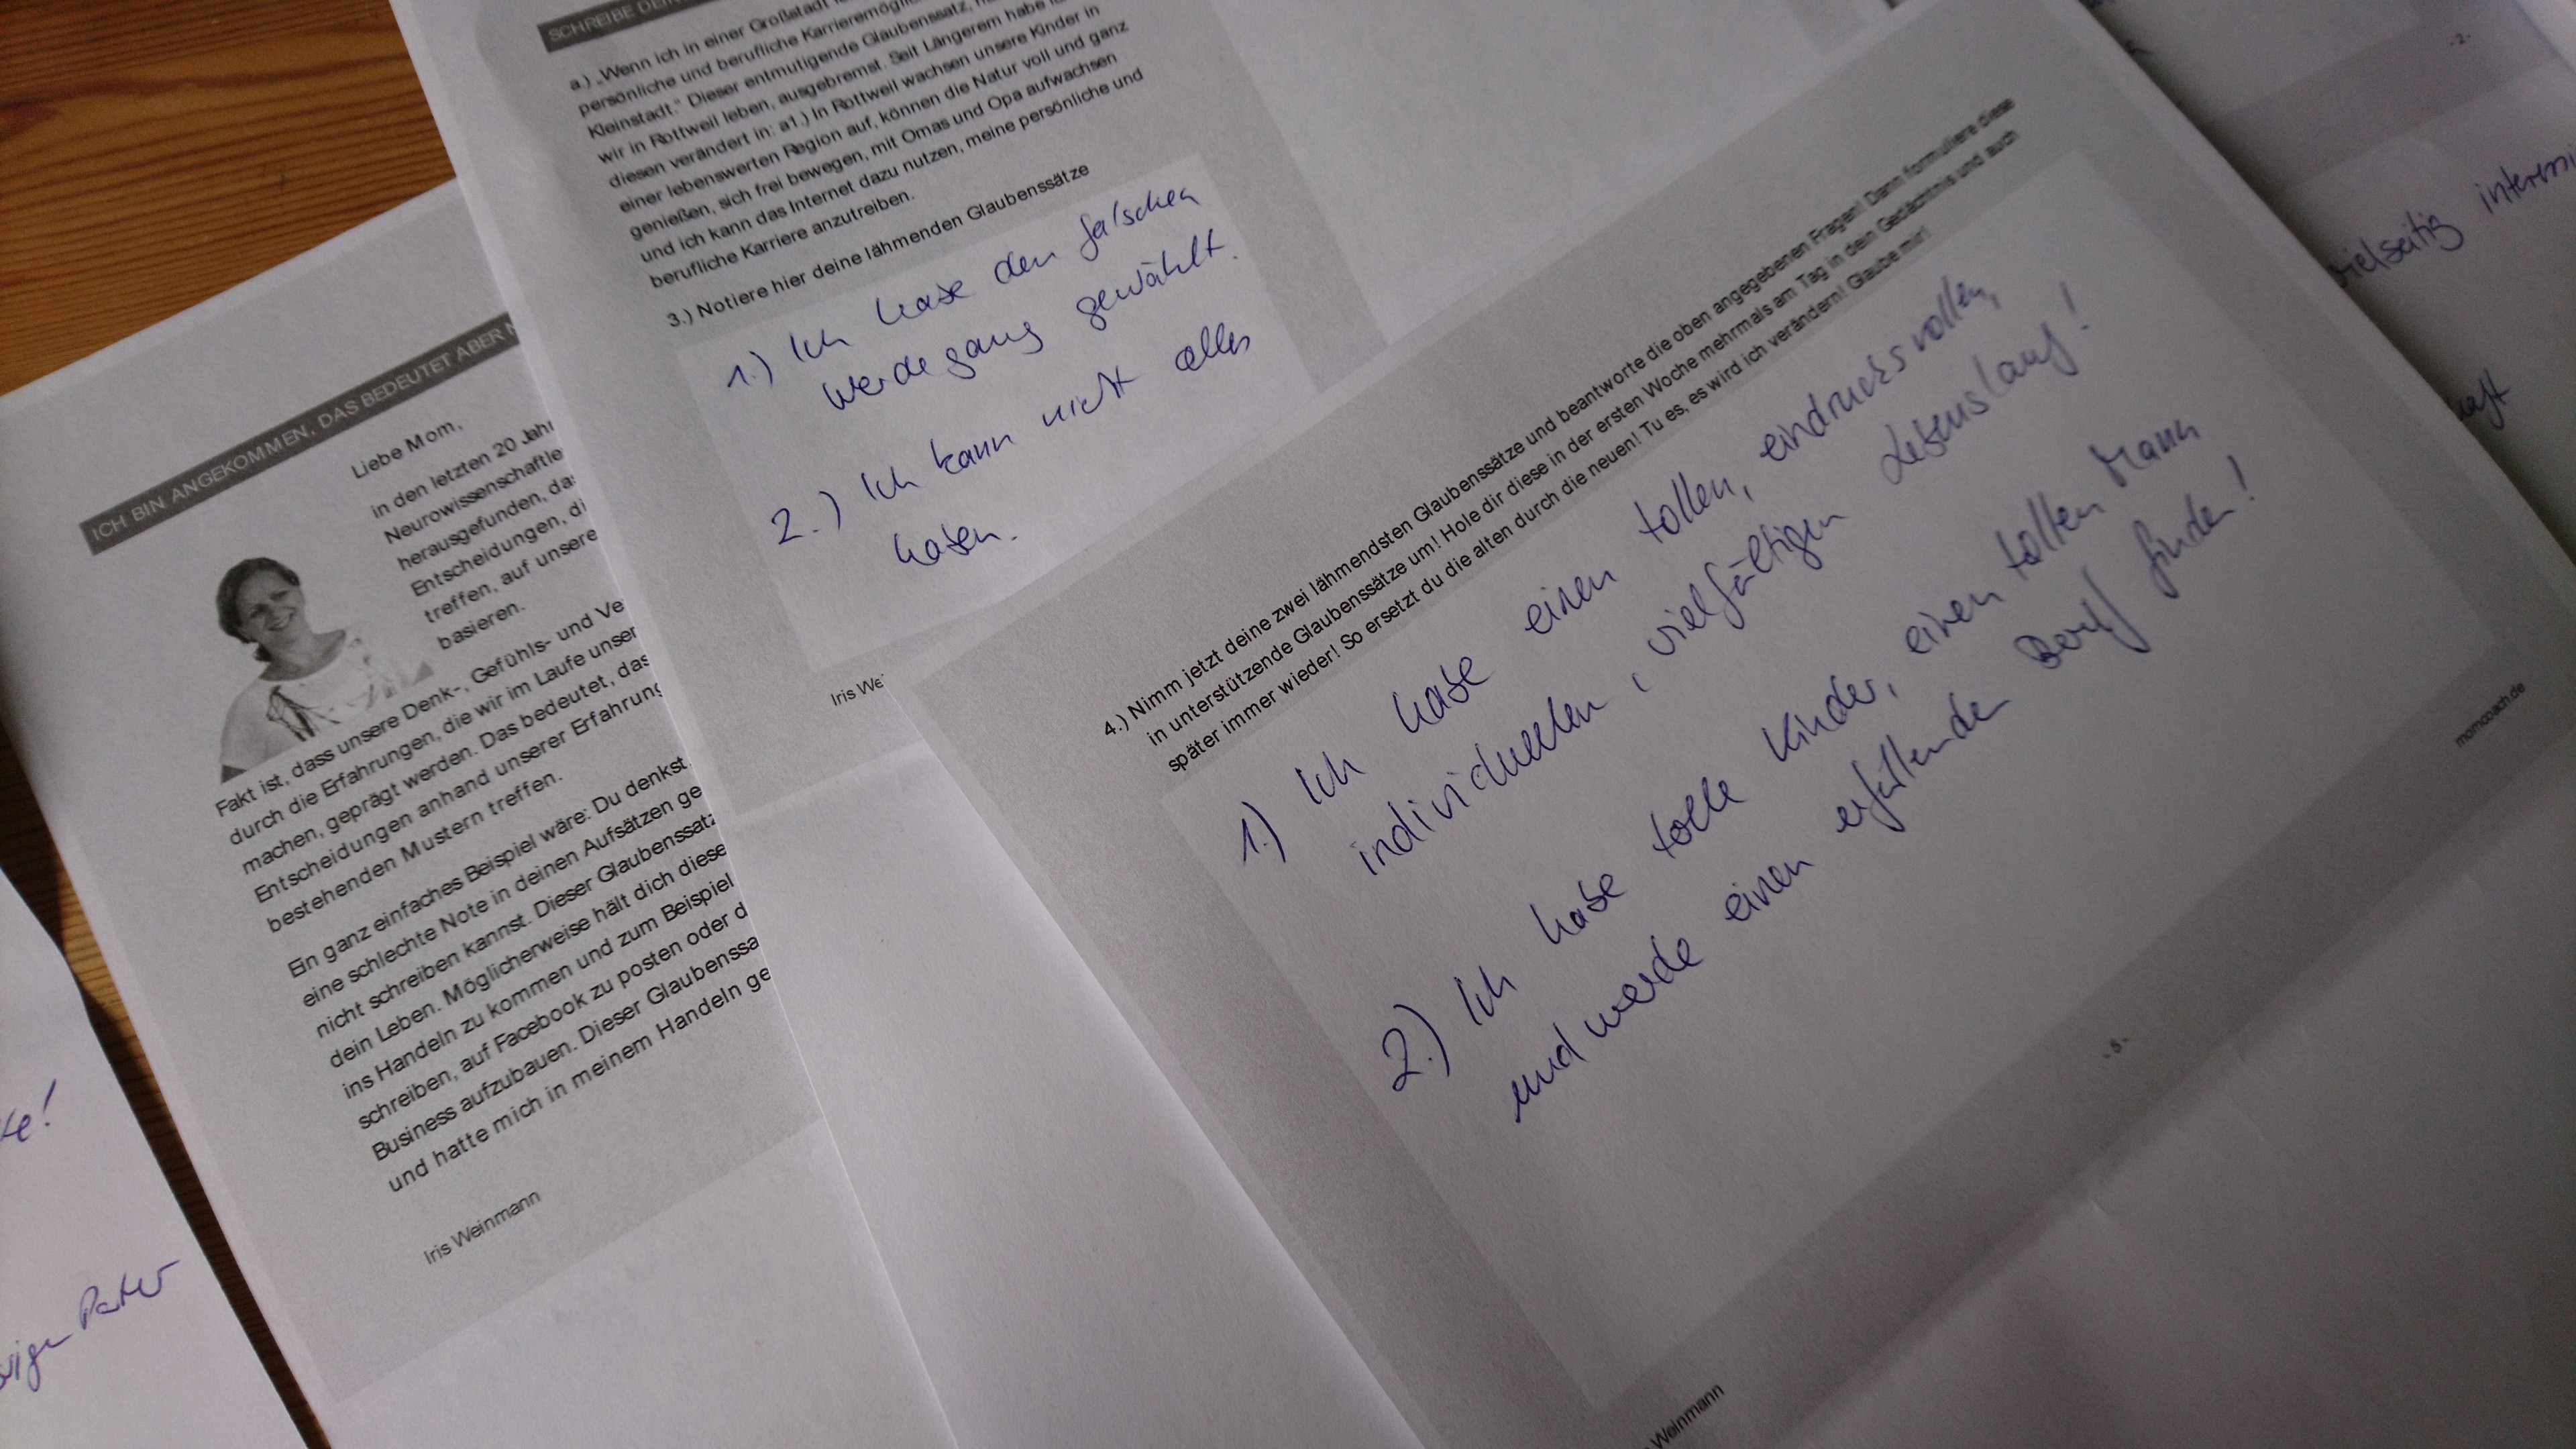 ICH BIN ANGEKOMMEN, DAS BEDEUTET ABER
Liebe Mom,
in den letzten 20 Jahr
Neurowissenschaftle
herausgefunden, da
Entscheidungen, di
treffen, auf unsere
basieren.
Fakt ist, dass unsere Denk-, Gefühls- und Ve
durch die Erfahrungen, die wir im Laufe unser
machen, geprägt werden. Das bedeutet, das
Entscheidungen anhand unserer Erfahrung
bestehenden Mustern treffen.
Ein ganz einfaches Beispiel wäre: Du denkst
eine schlechte Note in deinen Aufsätzen ge
nicht schreiben kannst. Dieser Glaubenssatz
dein Leben. Möglicherweise hält dich diese
ins Handeln zu kommen und zum Beispiel
schreiben, auf Facebook zu posten oder d
Business aufzubauen. Dieser Glaubenssa
und hatte mich in meinem Handeln ge
Iris Weinmann
SCHREIBE
a.) „Wenn ich in einer Großstadt
persönliche und berufliche Karrieremögli
Kleinstadt." Dieser entmutigende Glaubenssatz,
wir in Rottweil leben, ausgebremst. Seit Längerem habe
diesen verändert in: a1.) In Rottweil wachsen unsere Kinder in
einer lebenswerten Region auf, können die Natur voll und ganz
genießen, sich frei bewegen, mit Omas und Opa aufwachsen
und ich kann das Internet dazu nutzen, meine persönliche und
berufliche Karriere anzutreiben.
3.) Notiere hier deine lähmenden Glaubenssätze
1.) Ich habe den falschen
Werdegang gewählt.
2.) Ich kann nicht alles
haben.
Iris We
4.) Nimm jetzt deine zwei lähmendsten Glaubenssätze und beantworte die oben angegebenen Fragen! Dann formuliere diese
in unterstützende Glaubenssätze um! Hole dir diese in der ersten Woche mehrmals am Tag in dein Gedächtnis und auch
später immer wieder! So ersetzt du die alten durch die neuen! Tu es, es wird ich verändern! Glaube mir!
1.) Ich habe einen tollen, eindrucksvollen,
individuellen, vielfältigen Lebenslauf!
2.) Ich habe tolle Kinder, einen tollen Mann
und werde einen erfüllenden Beruf finden!
- 5 -
momcoach.de
Weinmann
- 2 -
vielseitig interessi